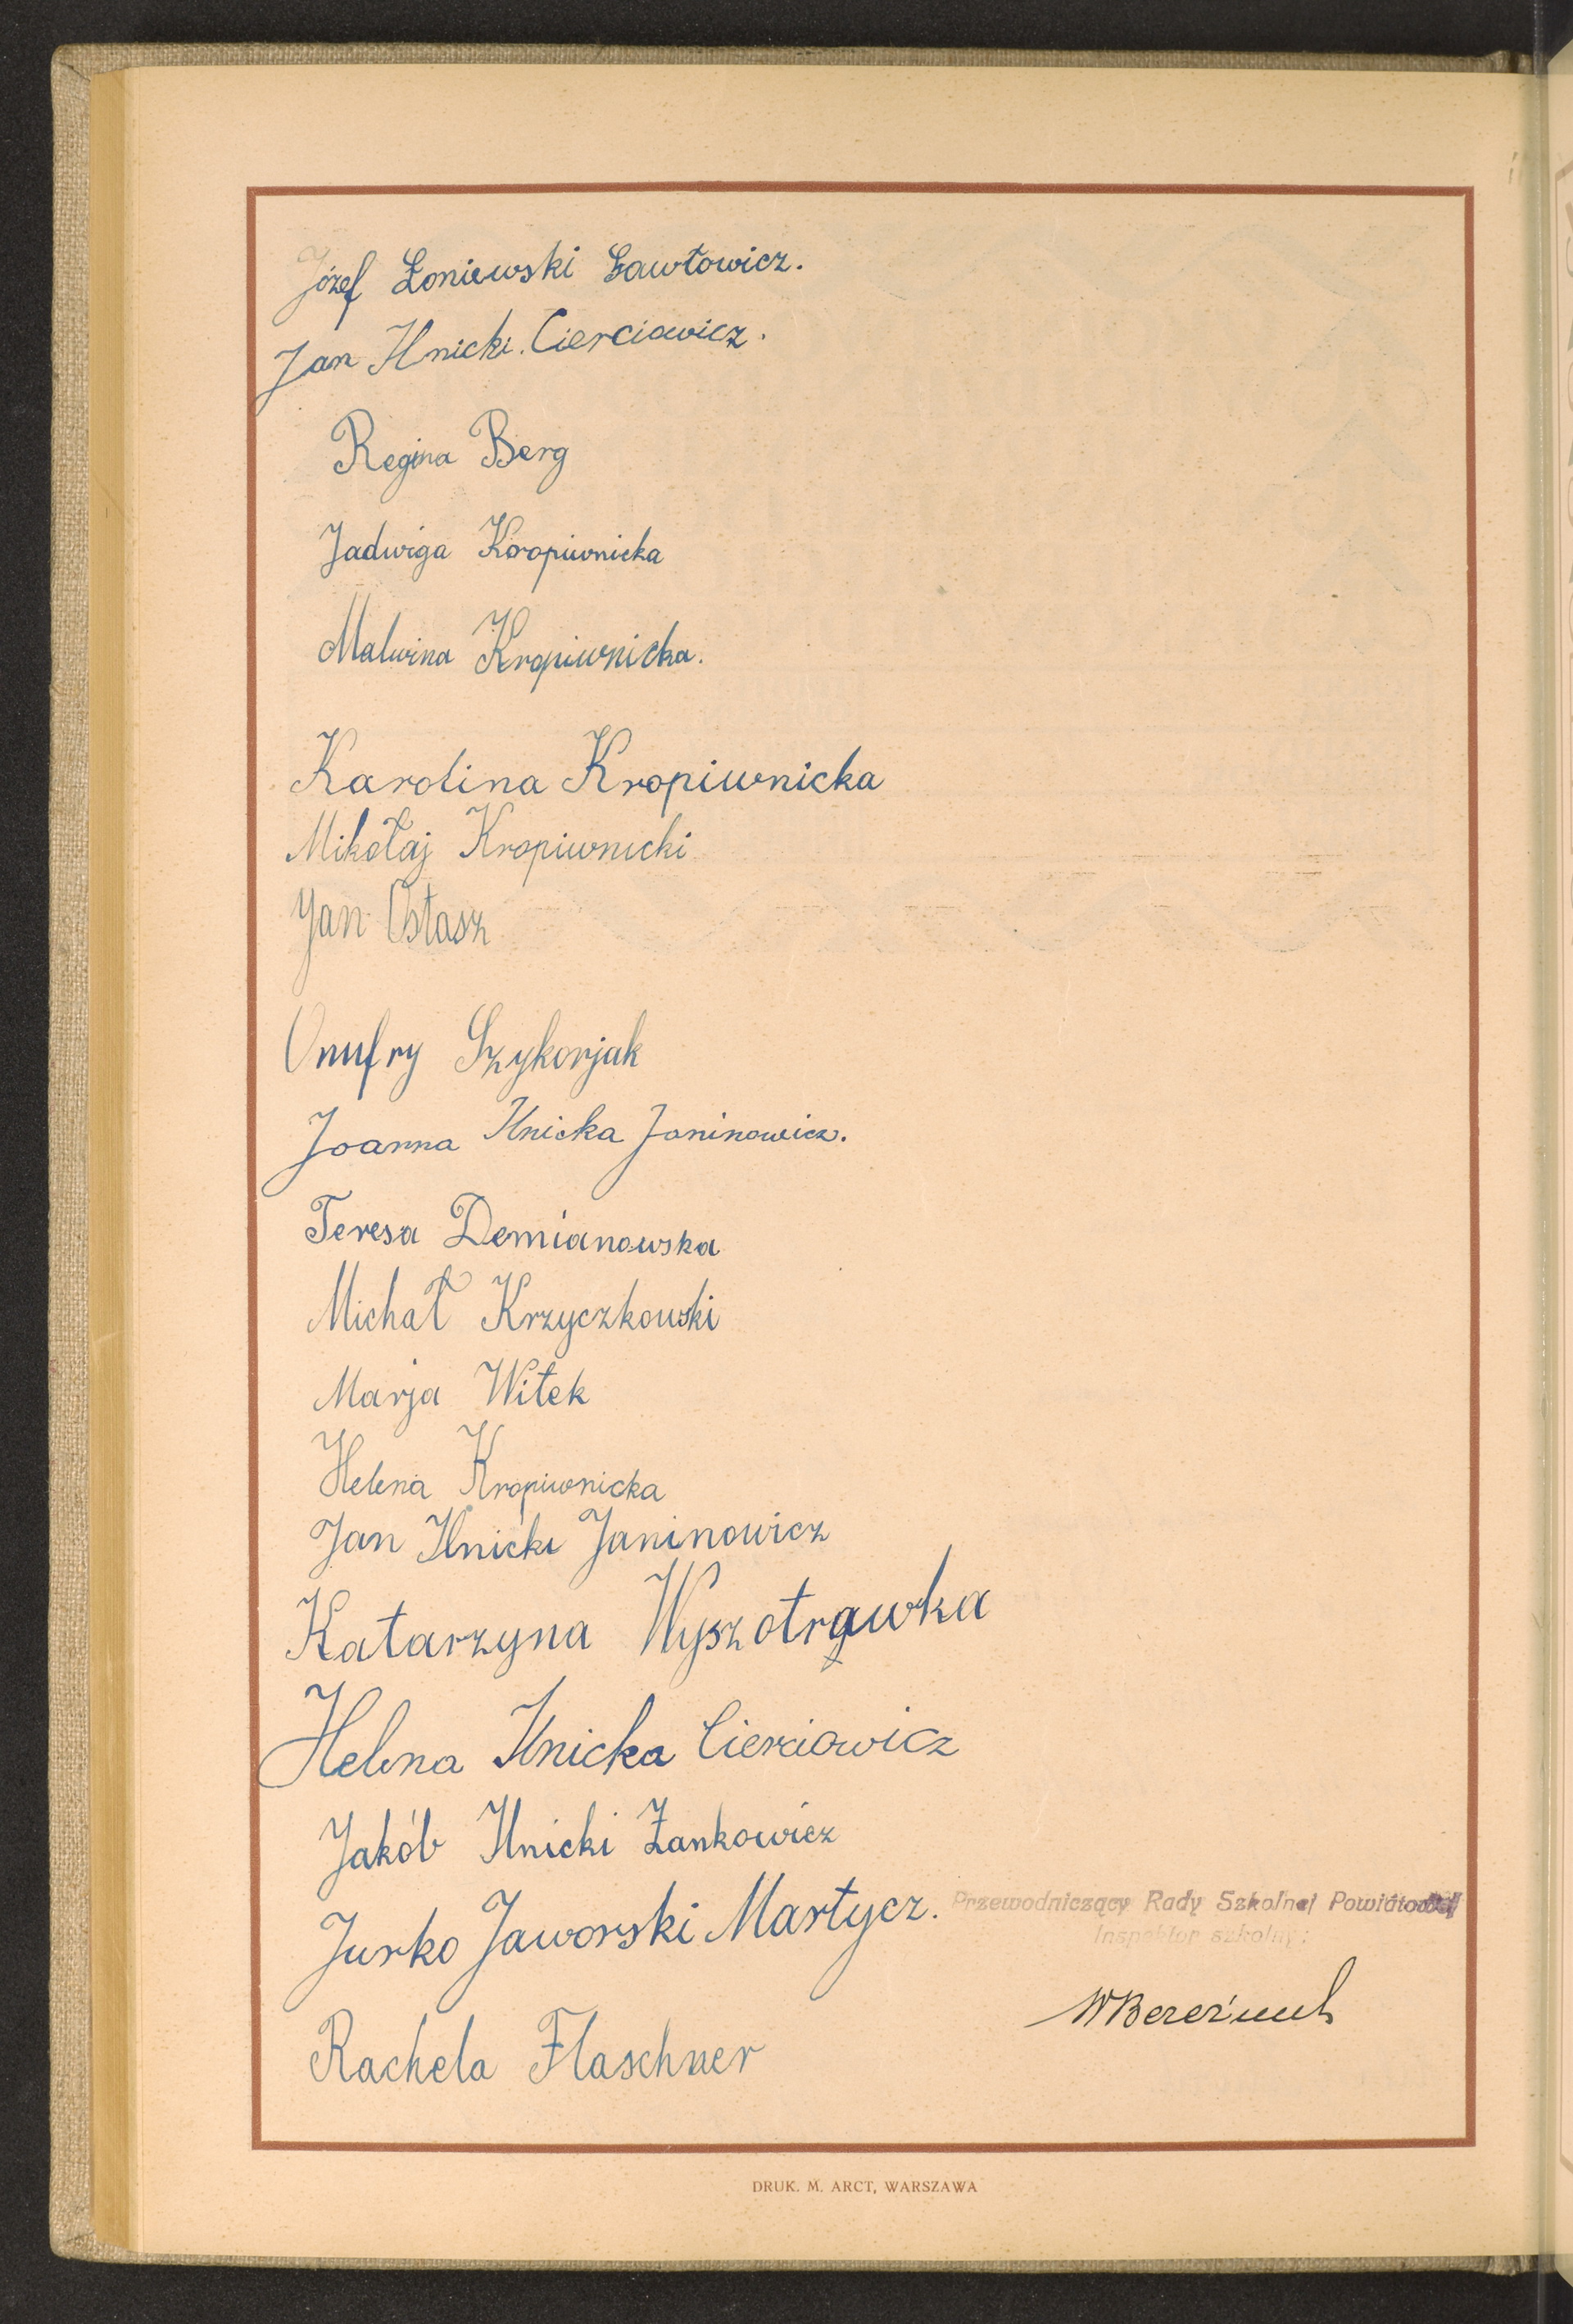 Józef Łoniewski Gawłowicz.
Jan Ilnicki. Cierciowicz.
Regina Berg
Jadwiga Kropiwnicka
Malwina Kropiwnicka.
Karolina Kropiwnicka
Mikołaj Kropiwnicki
Jan Ostasz
Onufry Szykorjak
Joanna Ilnicka Janinowicz.
Teresa Demianowska
Michał Krzyczkowski
Marja Witek
Helena Kropiwnicka
Jan Ilnicki Janinowicz
Katarzyna Wyszotrawka
Helena Ilnicka Cierciowicz
Jakób Ilnicki Zankowicz
Jurko Jaworski Martycz.
Rachela Flaschner
Przewodniczący Rady Szkolnej Powiatowej
Inspektor szkolny:
DRUK. M. ARCT, WARSZAWA